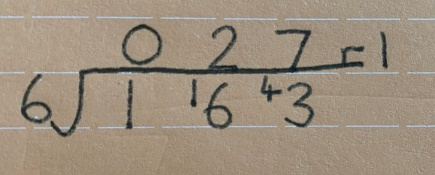 0 2 7 r 1
6 1 ¹6 ⁴3